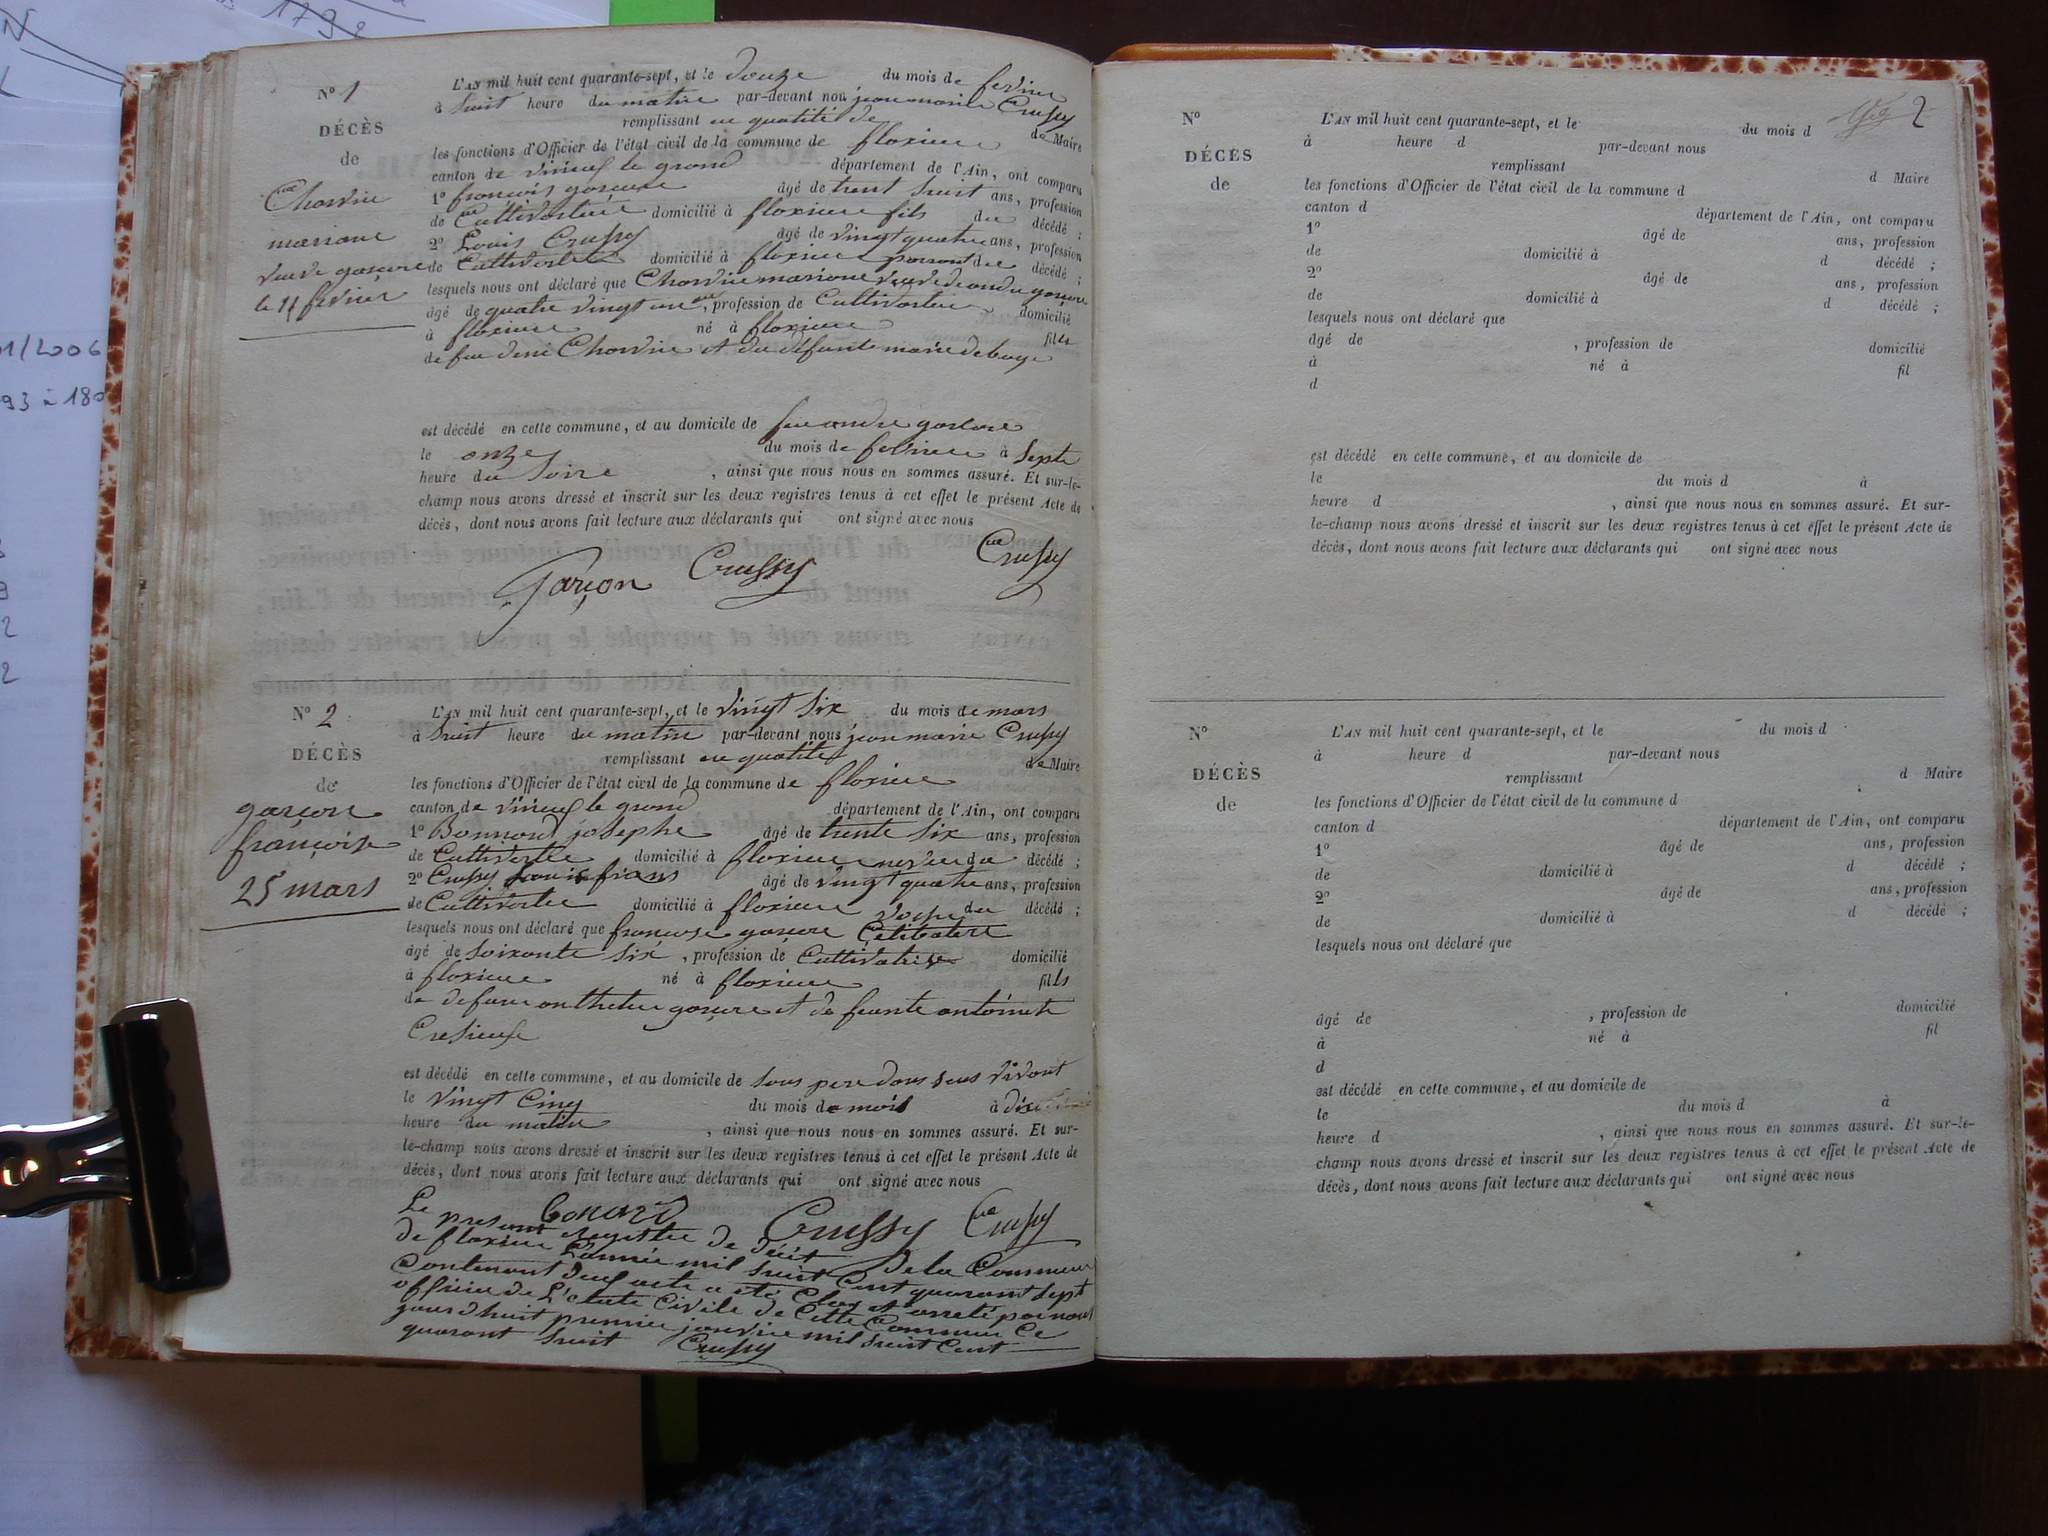 1792
01/2006
93 à 180
N° 1
DÉCÈS
de
Chardin
mariane
veuve garçon
le 11 fevrier
L'AN mil huit cent quarante-sept, et le douze du mois de fevrier
à huit heure du matin par-devant nou jean marie Crussy
remplissant en qualité de de Maire
les fonctions d'Officier de l'état civil de la commune de floxieu
canton de virieu le grand département de l'Ain, ont comparu
1° françois garçon âgé de trent huit ans, profession
de Cultivateur domicilié à floxieu fils du décédé ;
2° Louis Crussy âgé de vingt quatre ans, profession
de Cultivateur domicilié à floxieu parent du décédé ;
lesquels nous ont déclaré que Chardin mariane veuve de andre garçon
âgé de quatre vingt un ans, profession de Cultivateur domicilié
à floxieu né à floxieu fills
de feu deni Chardin et du défunte marie
est décédé en cette commune, et au domicile de feu andre garçon
le onze du mois de fevrier à septe
heure du soire , ainsi que nous nous en sommes assuré. Et sur-le-
champ nous avons dressé et inscrit sur les deux registres tenus à cet effet le présent Acte de
décès, dont nous avons fait lecture aux déclarants qui ont signé avec nous
Garçon Crussy Crussy
N° 2
DÉCÈS
de
garçon
françoise
25 mars
L'AN mil huit cent quarante-sept, et le vingt six du mois de mars
à huit heure du matin par-devant nous jean marie Crussy
remplissant en qualité de Maire
les fonctions d'Officier de l'état civil de la commune de floxieu
canton de virieu le grand département de l'Ain, ont comparu
1° Bonnard josephe âgé de trente six ans, profession
de Cultivateur domicilié à floxieu neveu du décédé ;
2° Crussy Louis âgé de vingt quatre ans, profession
de Cultivateur domicilié à floxieu du décédé ;
lesquels nous ont déclaré que françoise garçon Celibatere
âgé de soixante six , profession de Cultivatrise domicilié
à floxieu né à floxieu fills
de defun garçon et de antoinete
est décédé en cette commune, et au domicile de sous pere dous sens vivant
le vingt Cinq du mois de mars à dix
heure du matin , ainsi que nous nous en sommes assuré. Et sur-
le-champ nous avons dressé et inscrit sur les deux registres tenus à cet effet le présent Acte de
décès, dont nous avons fait lecture aux déclarants qui ont signé avec nous
Bonard Crussy Crussy
Le present registre de décét de la Commune
de floxieu L'année mil huit Cent quarant sept
Contenant deus acte a eté Clos et arreté par nous
officier de L'etate Civile de Cette Commune Ce
jourdhuit premier janvier mil huit Cent
quarant huit Crussy
2
N°
DÉCÈS
de
L'AN mil huit cent quarante-sept, et le du mois d
à heure d par-devant nous
remplissant d Maire
les fonctions d'Officier de l'état civil de la commune d
canton d département de l'Ain, ont comparu
1° âgé de ans, profession
de domicilié à d décédé ;
2° âgé de ans, profession
de domicilié à d décédé ;
lesquels nous ont déclaré que
âgé de , profession de domicilié
à né à fil
d
est décédé en cette commune, et au domicile de
le du mois d à
heure d , ainsi que nous nous en sommes assuré. Et sur-
le-champ nous avons dressé et inscrit sur les deux registres tenus à cet effet le présent Acte de
décès, dont nous avons fait lecture aux déclarants qui ont signé avec nous
N°
DÉCÈS
de
L'AN mil huit cent quarante-sept, et le du mois d
à heure d par-devant nous
remplissant d Maire
les fonctions d'Officier de l'état civil de la commune d
canton d département de l'Ain, ont comparu
1° âgé de ans, profession
de domicilié à d décédé ;
2° âgé de ans, profession
de domicilié à d décédé ;
lesquels nous ont déclaré que
âgé de , profession de domicilié
à né à fil
d
est décédé en cette commune, et au domicile de
le du mois d à
heure d , ainsi que nous nous en sommes assuré. Et sur-le-
champ nous avons dressé et inscrit sur les deux registres tenus à cet effet le présent Acte de
décès, dont nous avons fait lecture aux déclarants qui ont signé avec nous